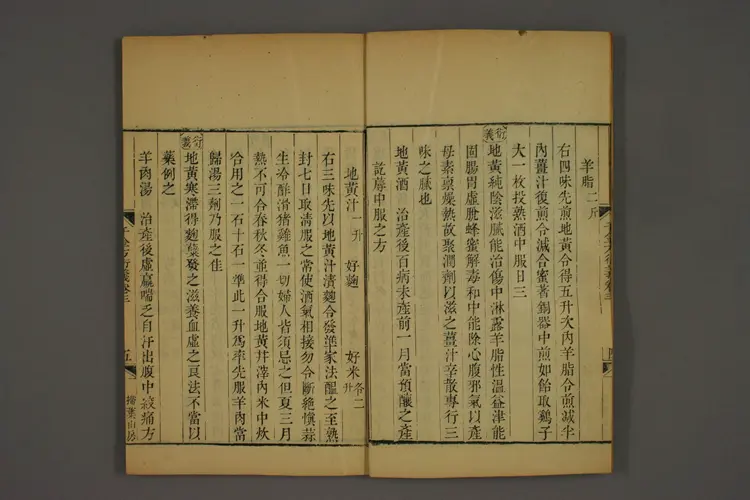 羊脂二斤
右四味先煎地黃令得五升次內羊脂令煎減半
內薑汁復煎令減合蜜著銅器中煎如飴取雞子
大一枚投熱酒中服日三
衍義
地黃純陰滋膩能治傷中淋露羊脂性溫益津能
固腸胃虛脫蜂蜜解毒和中能除心腹邪氣以產
母素稟燥熱故聚潤劑以滋之薑汁辛散專行三
味之膩也
地黃酒 治產後百病未產前一月當預釀之產
訖蓐中服之方
地黃汁一升 好麴 好米各二升
右三味先以地黃汁漬麴令發準家法醞之至熟
封七日取清服之常使酒氣相接勿令斷絕慎蒜
生冷酢滑猪雞魚一切婦人皆須忌之但夏三月
熱不可合春秋冬並得合服地黃幷滓內米中炊
合用之一石十石一準此一升爲率先服羊肉當
歸湯三劑乃服之佳
衍義
地黃寒滯得麴糵發之滋養血虛之良法不當以
藥例之
羊肉湯 治產後虛羸喘乏自汗出腹中㽲痛方
千金方衍義卷三
五
掃葉山房